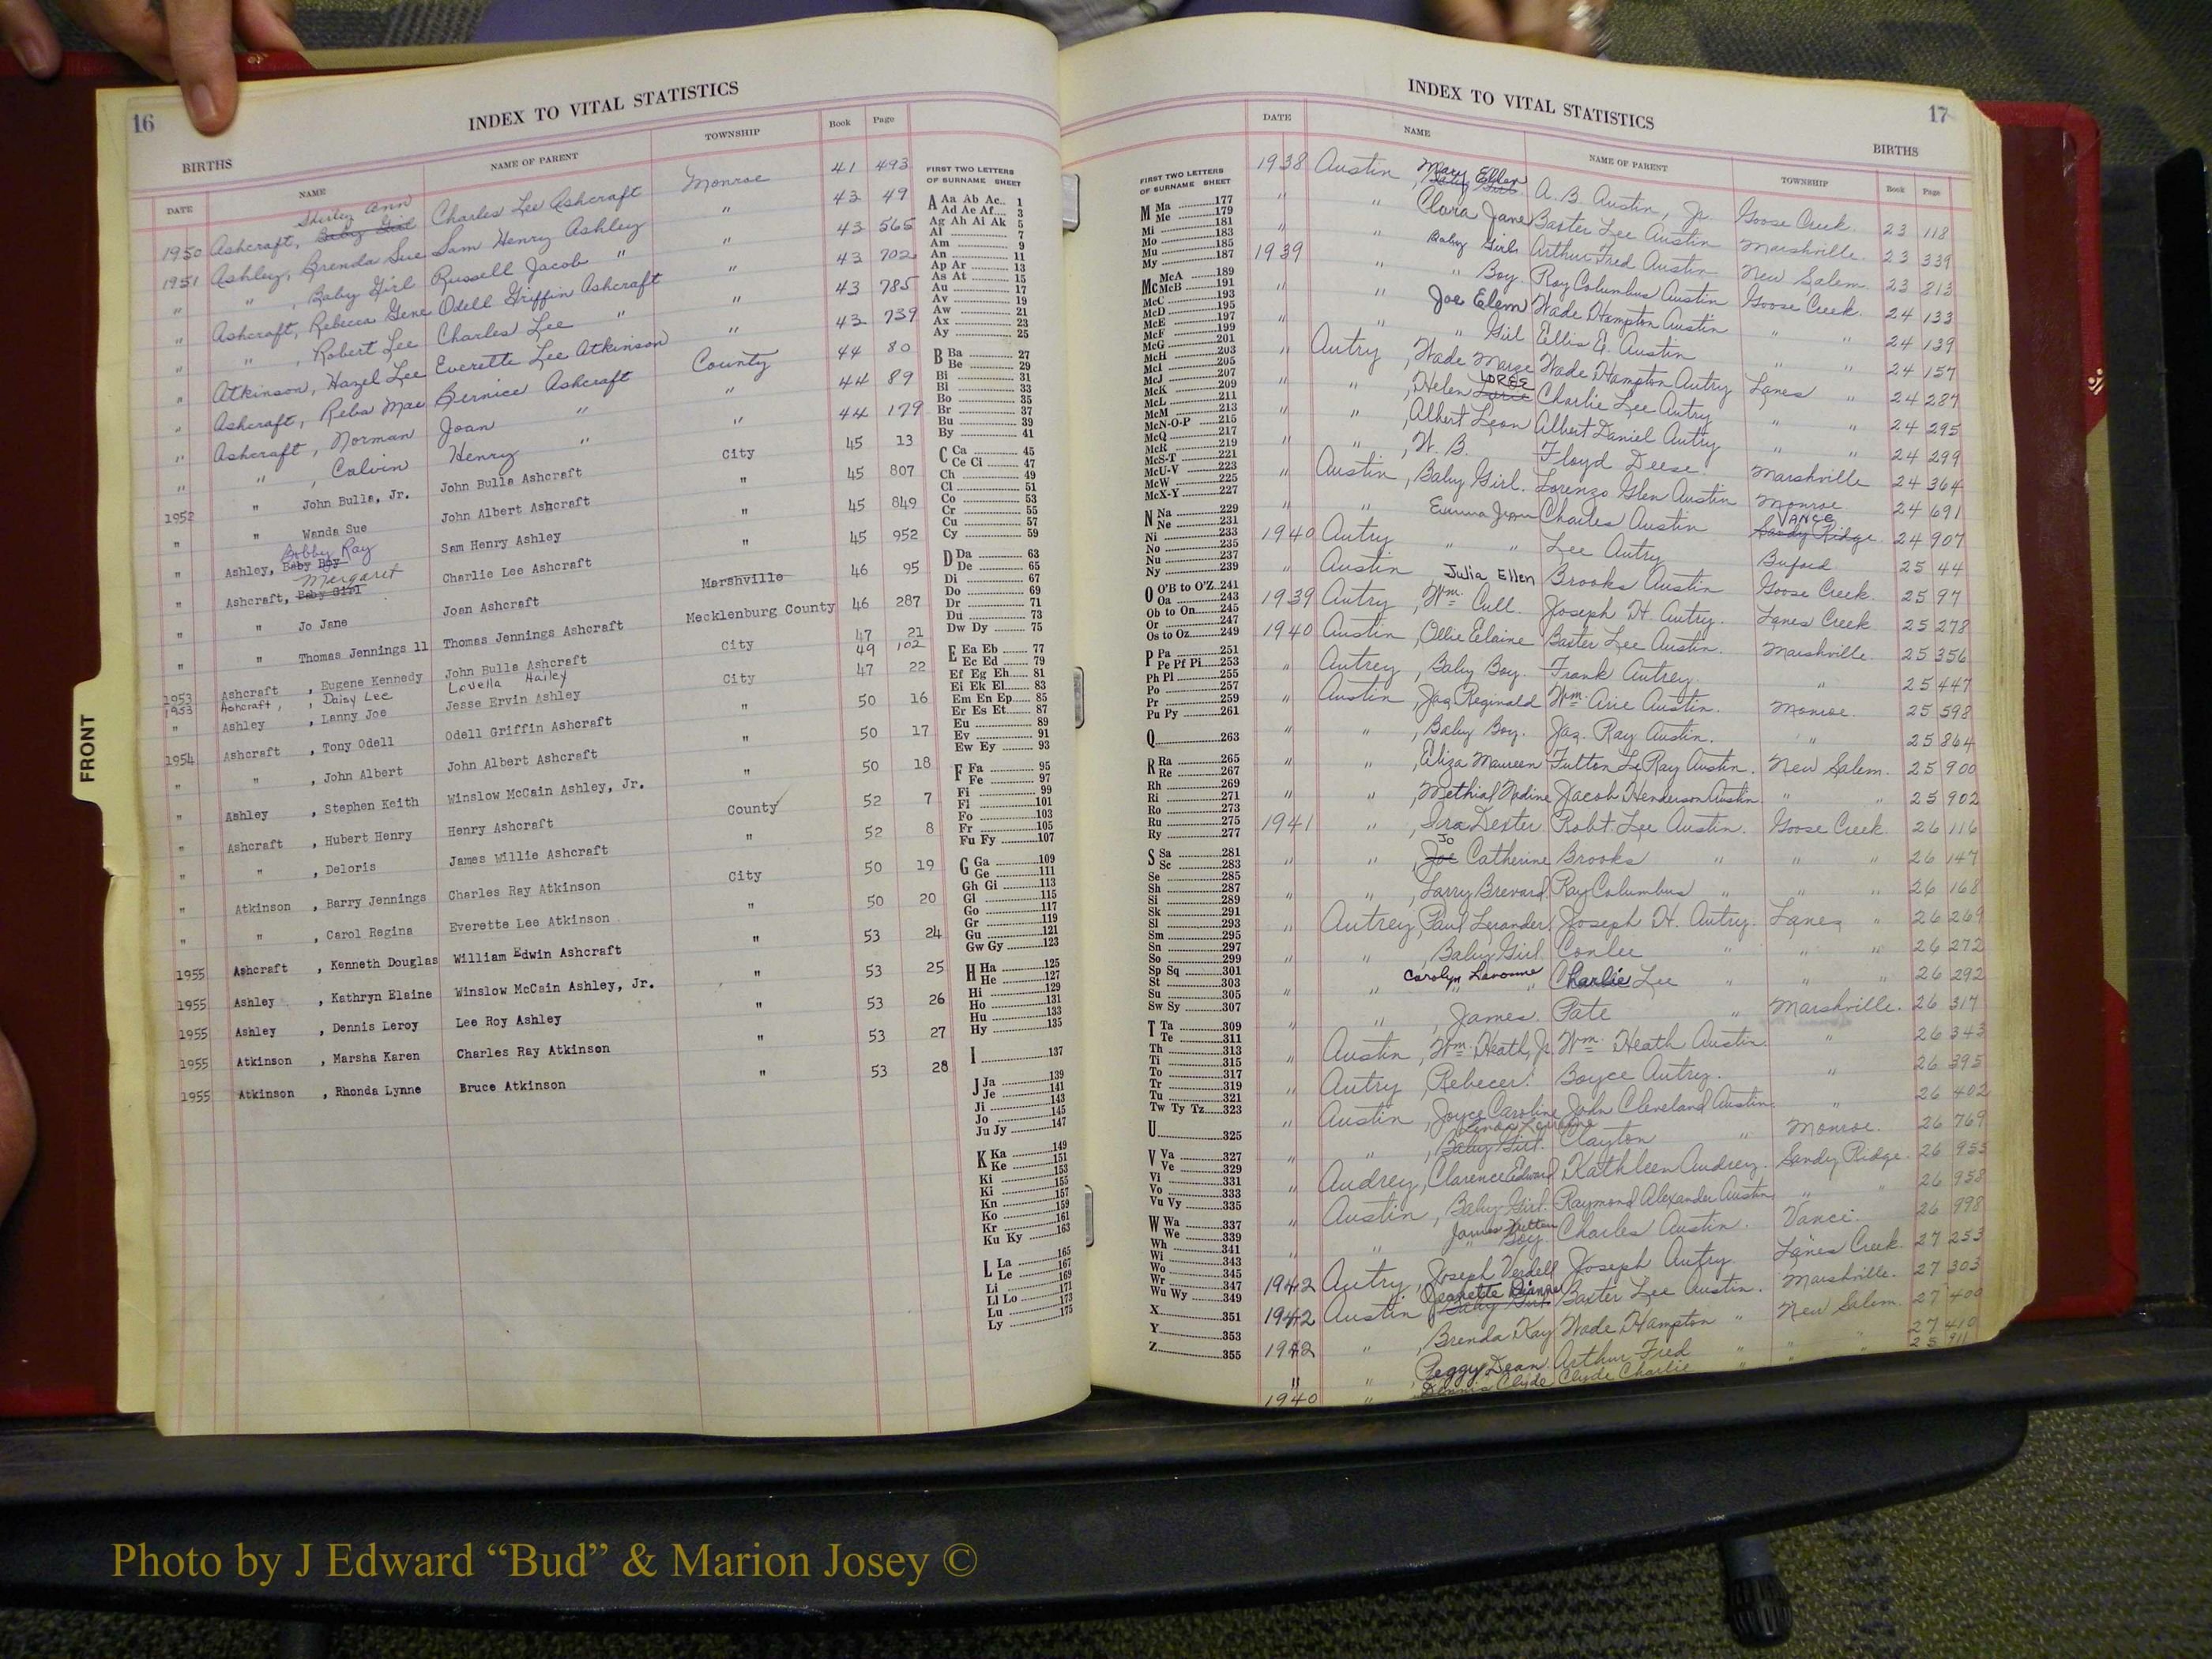 16
INDEX TO VITAL STATISTICS
BIRTHS
DATE NAME NAME OF PARENT TOWNSHIP Book Page
1950 Ashcraft, Shirley Ann Baby Girl Charles Lee Ashcraft Monroe 41 493
1951 Ashley, Brenda Sue Sam Henry Ashley " 43 49
" " , Baby Girl Russell Jacob " " 43 565
" Ashcraft, Rebecca Gene Odell Griffin Ashcraft " 43 702
" " , Robert Lee Charles Lee " " 43 785
" Atkinson, Hazel Lee Everette Lee Atkinson " 43 739
" Ashcraft, Reba Mae Bernice Ashcraft County 44 80
" Ashcraft, Norman Joan " " 44 89
" " , Calvin Henry " " 44 179
1952 " John Bulla, Jr. John Bulla Ashcraft City 45 13
" " Wanda Sue John Albert Ashcraft " 45 807
" Ashley, Bobby Ray Baby Boy Sam Henry Ashley " 45 849
" Ashcraft, Margaret Baby Girl Charlie Lee Ashcraft " 45 952
" " Jo Jane Joan Ashcraft Marshville 46 95
" " Thomas Jennings 11 Thomas Jennings Ashcraft Mecklenburg County 46 287
1953 Ashcraft , Eugene Kennedy John Bulla Ashcraft City 47 21
1953 Ashcraft, , Daisy Lee Lovella Hailey 49 102
" Ashley , Lanny Joe Jesse Ervin Ashley City 47 22
1954 Ashcraft , Tony Odell Odell Griffin Ashcraft " 50 16
" " , John Albert John Albert Ashcraft " 50 17
" Ashley , Stephen Keith Winslow McCain Ashley, Jr. " 50 18
" Ashcraft , Hubert Henry Henry Ashcraft County 52 7
" " , Deloris James Willie Ashcraft " 52 8
" Atkinson , Barry Jennings Charles Ray Atkinson City 50 19
" " , Carol Regina Everette Lee Atkinson " 50 20
1955 Ashcraft , Kenneth Douglas William Edwin Ashcraft " 53 24
1955 Ashley , Kathryn Elaine Winslow McCain Ashley, Jr. " 53 25
1955 Ashley , Dennis Leroy Lee Roy Ashley " 53 26
1955 Atkinson , Marsha Karen Charles Ray Atkinson " 53 27
1955 Atkinson , Rhonda Lynne Bruce Atkinson " 53 28
FRONT
FIRST TWO LETTERS
OF SURNAME SHEET
A Aa Ab Ac.. 1
Ad Ae Af.... 3
Ag Ah Ai Ak 5
Al 7
Am 9
An 11
Ap Ar 13
As At 15
Au 17
Av 19
Aw 21
Ax 23
Ay 25
B Ba 27
Be 29
Bi 31
Bl 33
Bo 35
Br 37
Bu 39
By 41
C Ca 45
Ce Ci 47
Ch 49
Cl 51
Co 53
Cr 55
Cu 57
Cy 59
D Da 63
De 65
Di 67
Do 69
Dr 71
Du 73
Dw Dy 75
E Ea Eb 77
Ec Ed 79
Ef Eg Eh 81
Ei Ek El 83
Em En Ep 85
Er Es Et 87
Eu 89
Ev 91
Ew Ey 93
F Fa 95
Fe 97
Fi 99
Fl 101
Fo 103
Fr 105
Fu Fy 107
G Ga 109
Ge 111
Gh Gi 113
Gl 115
Go 117
Gr 119
Gu 121
Gw Gy 123
H Ha 125
He 127
Hi 129
Ho 131
Hu 133
Hy 135
I 137
J Ja 139
Je 141
Ji 143
Jo 145
Ju Jy 147
K Ka 149
Ke 151
Ki 153
Ki 155
Kn 157
Ko 159
Kr 161
Ku Ky 163
L La 165
Le 167
Li 169
Ll Lo 171
Lu 173
Ly 175
17
INDEX TO VITAL STATISTICS
BIRTHS
DATE NAME NAME OF PARENT TOWNSHIP Book Page
FIRST TWO LETTERS
OF SURNAME SHEET
M Ma 177
Me 179
Mi 181
Mo 183
Mu 185
My 187
Mc McA 189
McB 191
McC 193
McD 195
McE 197
McF 199
McG 201
McH 203
McI 205
McJ 207
McK 209
McL 211
McM 213
McN-O-P 215
McQ 217
McR 219
McS-T 221
McU-V 223
McW 225
McX-Y 227
N Na 229
Ne 231
Ni 233
No 235
Nu 237
Ny 239
O O'B to O'Z 241
Oa 243
Ob to On 245
Or 247
Os to Oz 249
P Pa 251
Pe Pf Pi 253
Ph Pl 255
Po 257
Pr 259
Pu Py 261
Q 263
R Ra 265
Re 267
Rh 269
Ri 271
Ro 273
Ru 275
Ry 277
S Sa 281
Sc 283
Se 285
Sh 287
Si 289
Sk 291
Sl 293
Sm 295
Sn 297
So 299
Sp Sq 301
St 303
Su 305
Sw Sy 307
T Ta 309
Te 311
Th 313
Ti 315
To 317
Tr 319
Tu 321
Tw Ty Tz 323
U 325
V Va 327
Ve 329
Vi 331
Vo 333
Vu Vy 335
W Wa 337
We 339
Wh 341
Wi 343
Wo 345
Wr 347
Wu Wy 349
X 351
Y 353
Z 355
1938 Austin , Mary Ellen Baby Girl A. B. Austin, Jr. Goose Creek. 23 118
" " Clara Jane Baxter Lee Austin Marshville. 23 339
1939 " Baby Girl Arthur Fred Austin New Salem. 23 813
" " " Boy. Roy Columbus Austin Goose Creek. 24 133
" " Joe Elem Wade Hampton Austin " " 24 139
" " " Girl Ellis E. Austin " " 24 157
" Autry , Wade Marze Wade Hampton Autry Lanes " 24 287
" " , Helen Loree Charlie Lee Autry " " 24 295
" " , Albert Leon Albert Daniel Autry " " 24 299
" " , W. B. Floyd Deese. Marshville 24 364
" Austin , Baby Girl. Lorenzo Glen Austin Monroe 24 691
" " Emma Jean Charles Austin VANCE Sandy Ridge. 24 907
1940 Autry " " Lee Autry Buford 25 44
" Austin Julia Ellen Brooks Austin Goose Creek. 25 97
1939 Autry , Wm. Cull. Joseph H. Autry. Lanes Creek 25 278
1940 Austin , Ollie Elaine Baxter Lee Austin. Marshville. 25 356
" Autrey , Baby Boy. Frank Autrey. " 25 447
" Austin , Jas Reginald Wm. Arie Austin. Monroe. 25 598
" " , Baby Boy. Jas. Ray Austin. " 25 864
" " , Eliza Maureen Fulton Le Ray Austin. New Salem. 25 900
" " , Methial Nadine Jacob Henderson Austin " " 25 902
1941 " , Ira Dexter. Robt. Lee Austin. Goose Creek. 26 116
" " , Jo Joe Catherine Brooks " " " 26 147
" " , Larry Brevard Ray Columbus " " " 26 168
" Autrey, Paul Joseph H. Autry. Lanes " 26 269
" " , Baby Girl. Conlee " " " 26 272
" " Carolyn Lavonne " Charlie Lee " " " 26 292
" " , James. Pate " Marshville. 26 317
" Austin , Wm. Heath, Jr. Wm. Heath Austin. " 26 343
" Autry , Boyce Autry. " 26 395
" Austin , Joyce Caroline John Cleveland Austin. " 26 402
" " , Baby Girl. Clayton " Monroe. 26 769
" Audrey, Clarence Edward Kathleen Audrey. Sandy Ridge. 26 955
" Austin , Baby Girl. Raymond Alexander Austin " " 26 958
" " James Boy. Charles Austin. Vance. 26 998
1942 Autry , Joseph Verdell Joseph Autry. Lanes Creek. 27 253
1942 Austin , Jeanette Dianne Baby Girl. Baxter Lee Austin. Marshville. 27 303
1942 " , Brenda Kay Wade Hampton " New Salem. 27 400
" " , Peggy Dean. Arthur Fred " " " 27 410
1940 " " Dennis Clyde Clyde Charlie " " " 25 911
Photo by J Edward “Bud” & Marion Josey ©